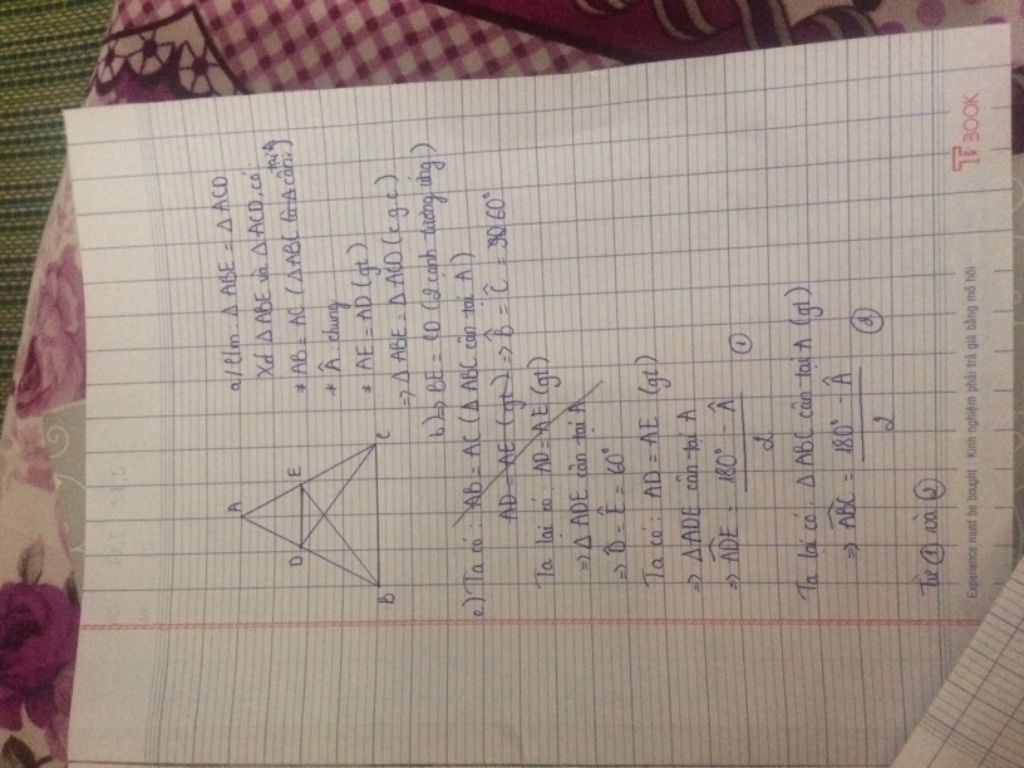 A
D
E
B
C
a/ C/m: Δ ABE = Δ ACD
Xét Δ ABE và Δ ACD, có
* AB = AC ( Δ ABC là Δ cân tại A )
* Â chung
* AE = AD (gt)
=> Δ ABE = Δ ACD (c.g.c)
b) => BE = CD (2 cạnh tương ứng)
c) Ta có: AB = AC ( Δ ABC cân tại A )
AD = AE (gt) => B̂ = Ĉ = 60°
Ta lại có: AD = AE (gt)
=> Δ ADE cân tại A
=> D̂ = Ê = 60°
Ta có: AD = AE (gt)
=> Δ ADE cân tại A
=> ADE = 180° - Â
2
①
Ta lại có: Δ ABC cân tại A (gt)
=> ABC = 180° - Â
2
②
Từ ① và ②
Experience must be bought : Kinh nghiệm phải trả giá bằng mồ hôi
BOOK